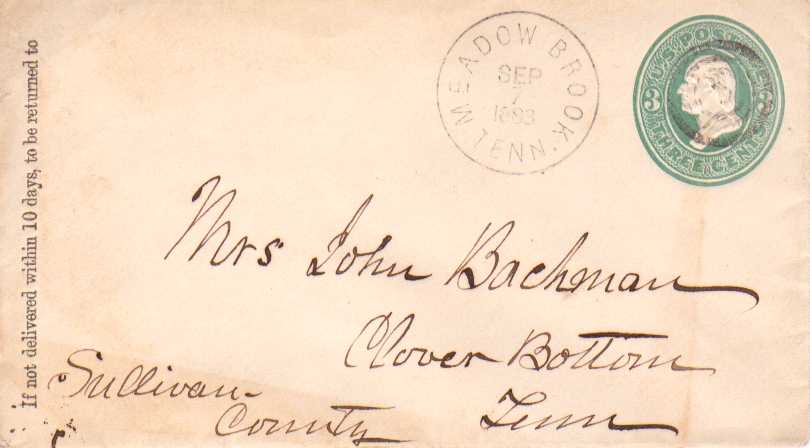 If not delivered within 10 days, to be returned to
MEADOW BROOK.
TENN.
SEP
7
1883
U.S. POSTAGE
3 3
THREE CENTS
Mrs John Bachman
Clover Bottom
Tenn
Sullivan
County